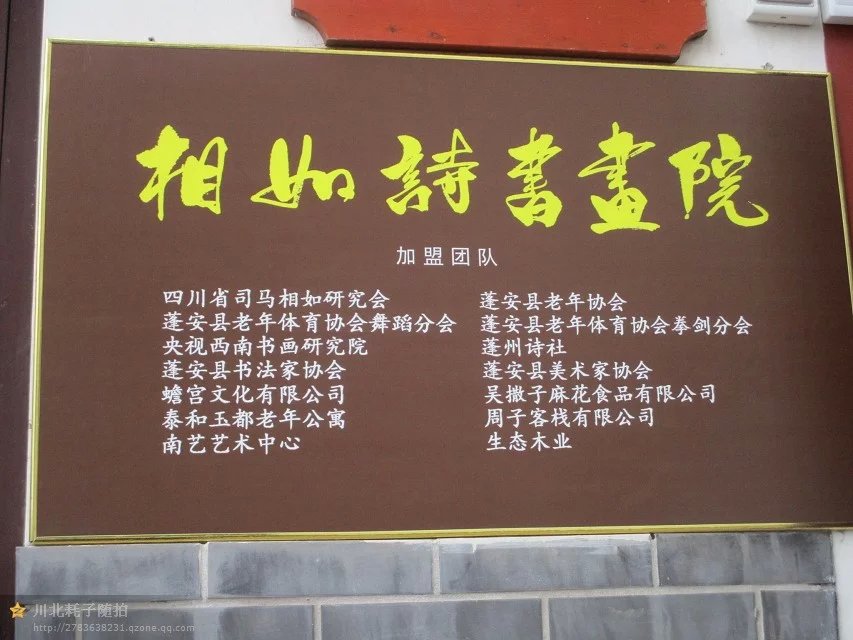 相如詩書畫院
加盟团队
四川省司马相如研究会
蓬安县老年体育协会舞蹈分会
央视西南书画研究院
蓬安县书法家协会
蟾宫文化有限公司
泰和玉都老年公寓
南艺艺术中心
蓬安县老年协会
蓬安县老年体育协会拳剑分会
蓬州诗社
蓬安县美术家协会
吴撒子麻花食品有限公司
周子客栈有限公司
生态木业
川北耗子随拍
http://2783638231.qzone.qq.com